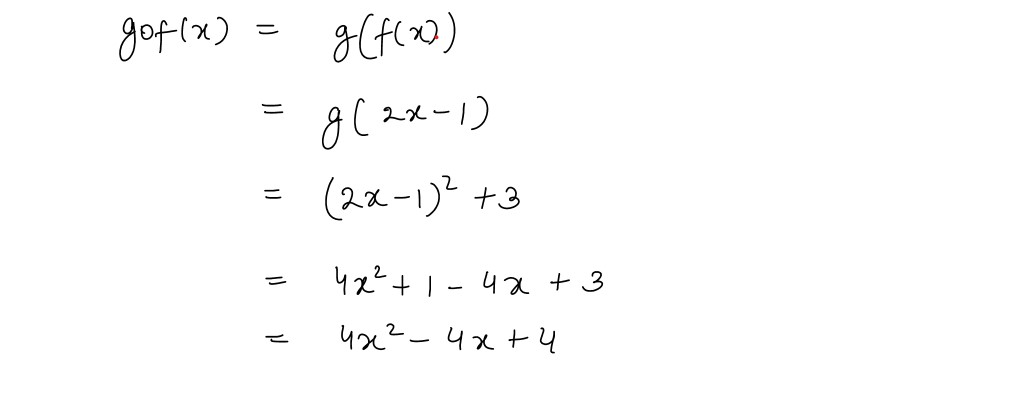 gof(x) = g(f(x))
= g(2x-1)
= (2x-1)² +3
= 4x² + 1 - 4x + 3
= 4x² - 4x + 4